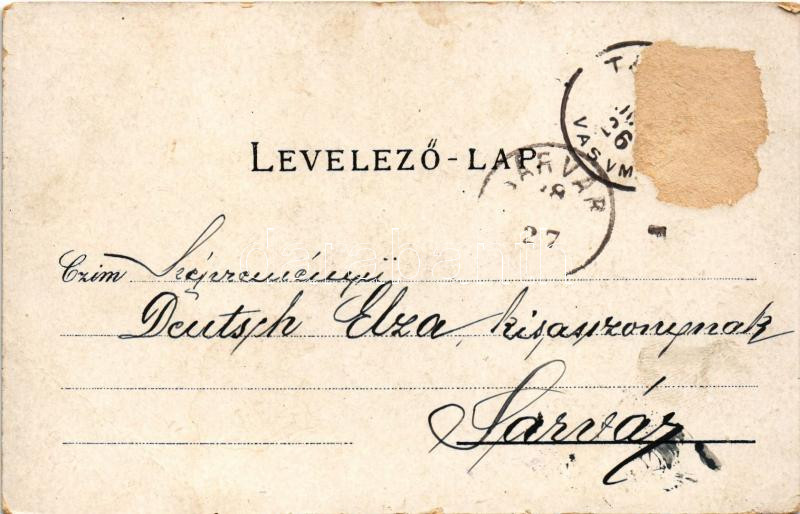 LEVELEZŐ-LAP
VAS VM
26
SÁRVÁR
27
Czim Szépreményű
Deutsch Elza kisasszonynak
Sárvár